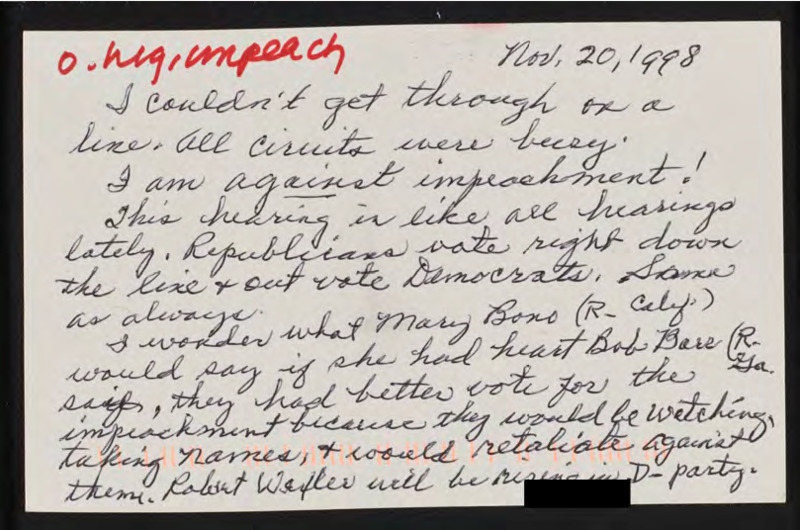 o. hlg, impeach Nov. 20, 1998
I couldn't get through on a
line. All ciruits were busy.
I am against impeachment!
This hearing is like all hearings
lately. Republicians vote right down
the line & out vote Democrats. Same
as always.
I wonder what Mary Bono (R- Calif.)
would say if she had heart Bob Barr (R-Ga.
say, they had better vote for the
impeachment because they would be watching,
taking names, & would retaliate against
them. Robert will be rising in D- party.